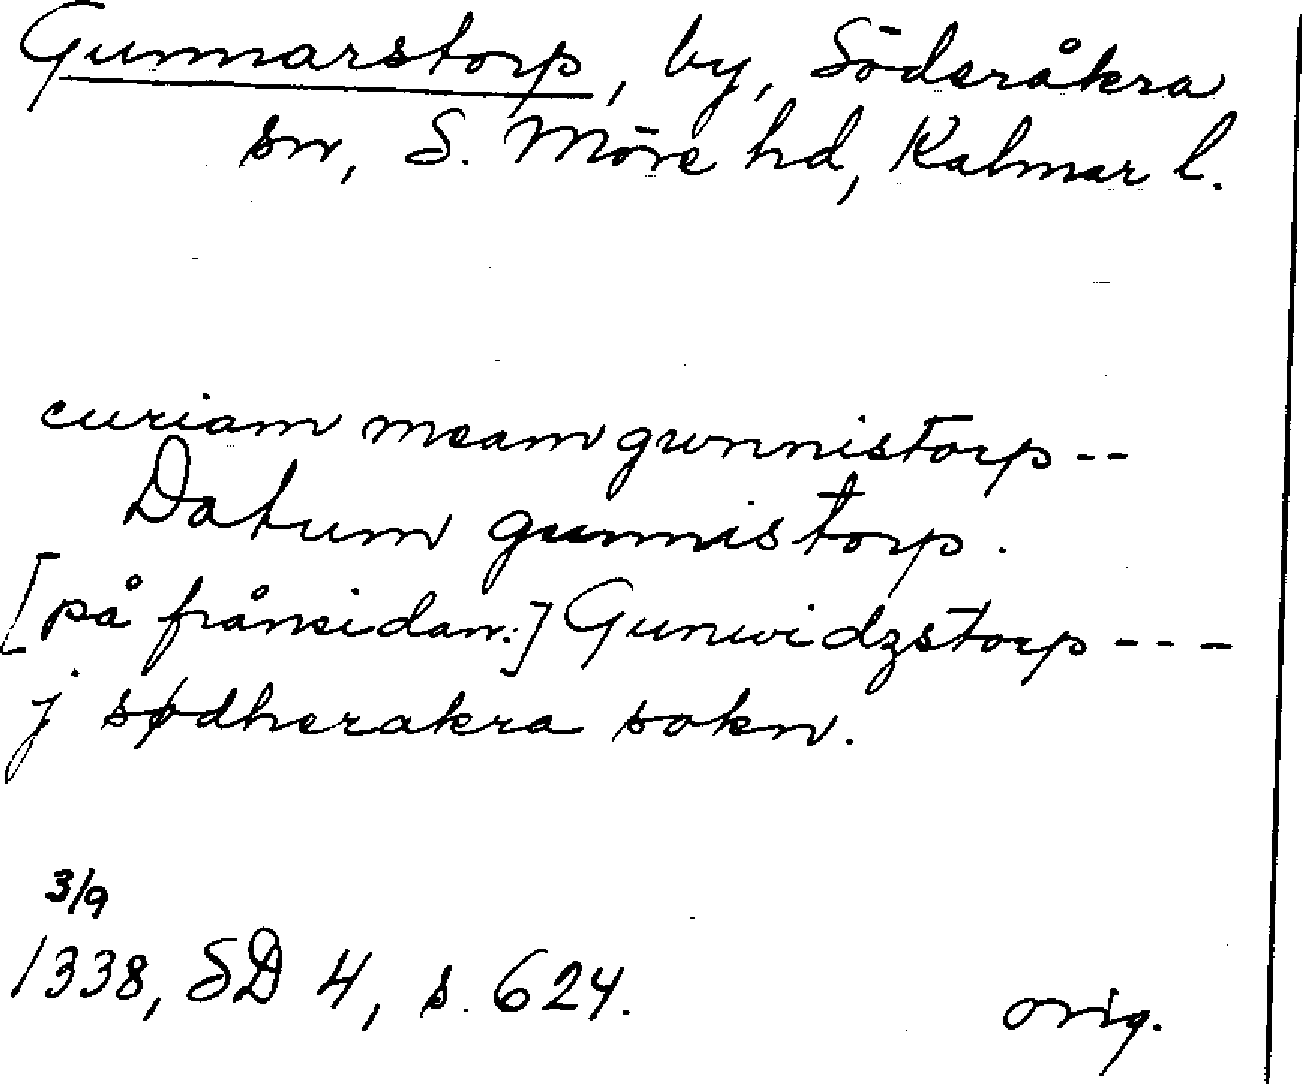 Gunnarstorp, by, Söderåkra
sn, S. Möre hd, Kalmar l.
curiam meam gunnistorp --
Datum gunnistorp.
[på frånsidan:] Gunuidzstorp ---
j sødherakra sokn.
3/9
1338, SD 4, s. 624.
orig.